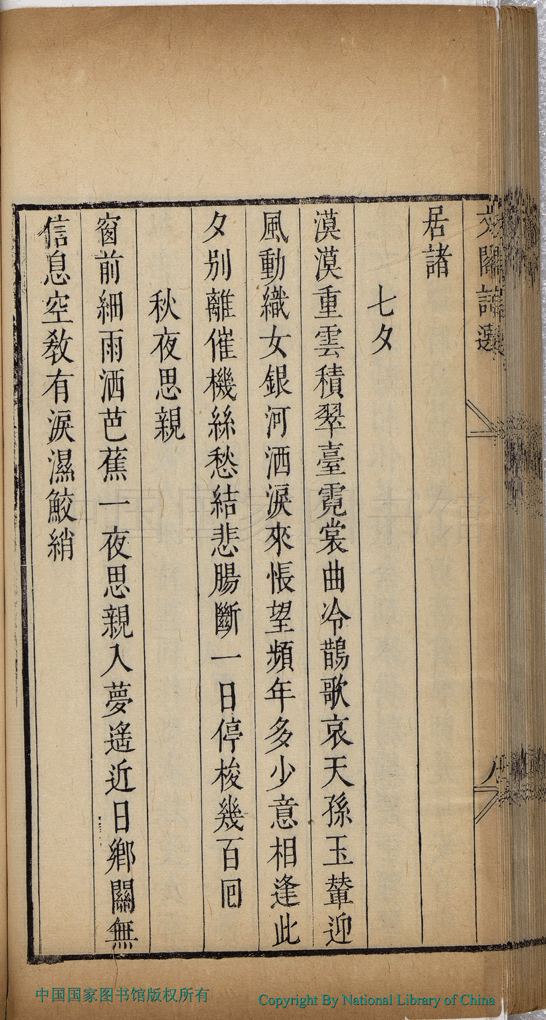 居諸
七夕
漠漠重雲積翠臺霓裳曲冷鵲歌哀天孫玉輦迎
風動織女銀河洒淚來悵望頻年多少意相逢此
夕別離催機絲愁結悲腸斷一日停梭幾百囘
秋夜思親
窗前細雨洒芭蕉一夜思親入夢遙近日鄉關無
信息空敎有淚濕鮫綃
中国国家图书馆版权所有
Copyright By National Library of China